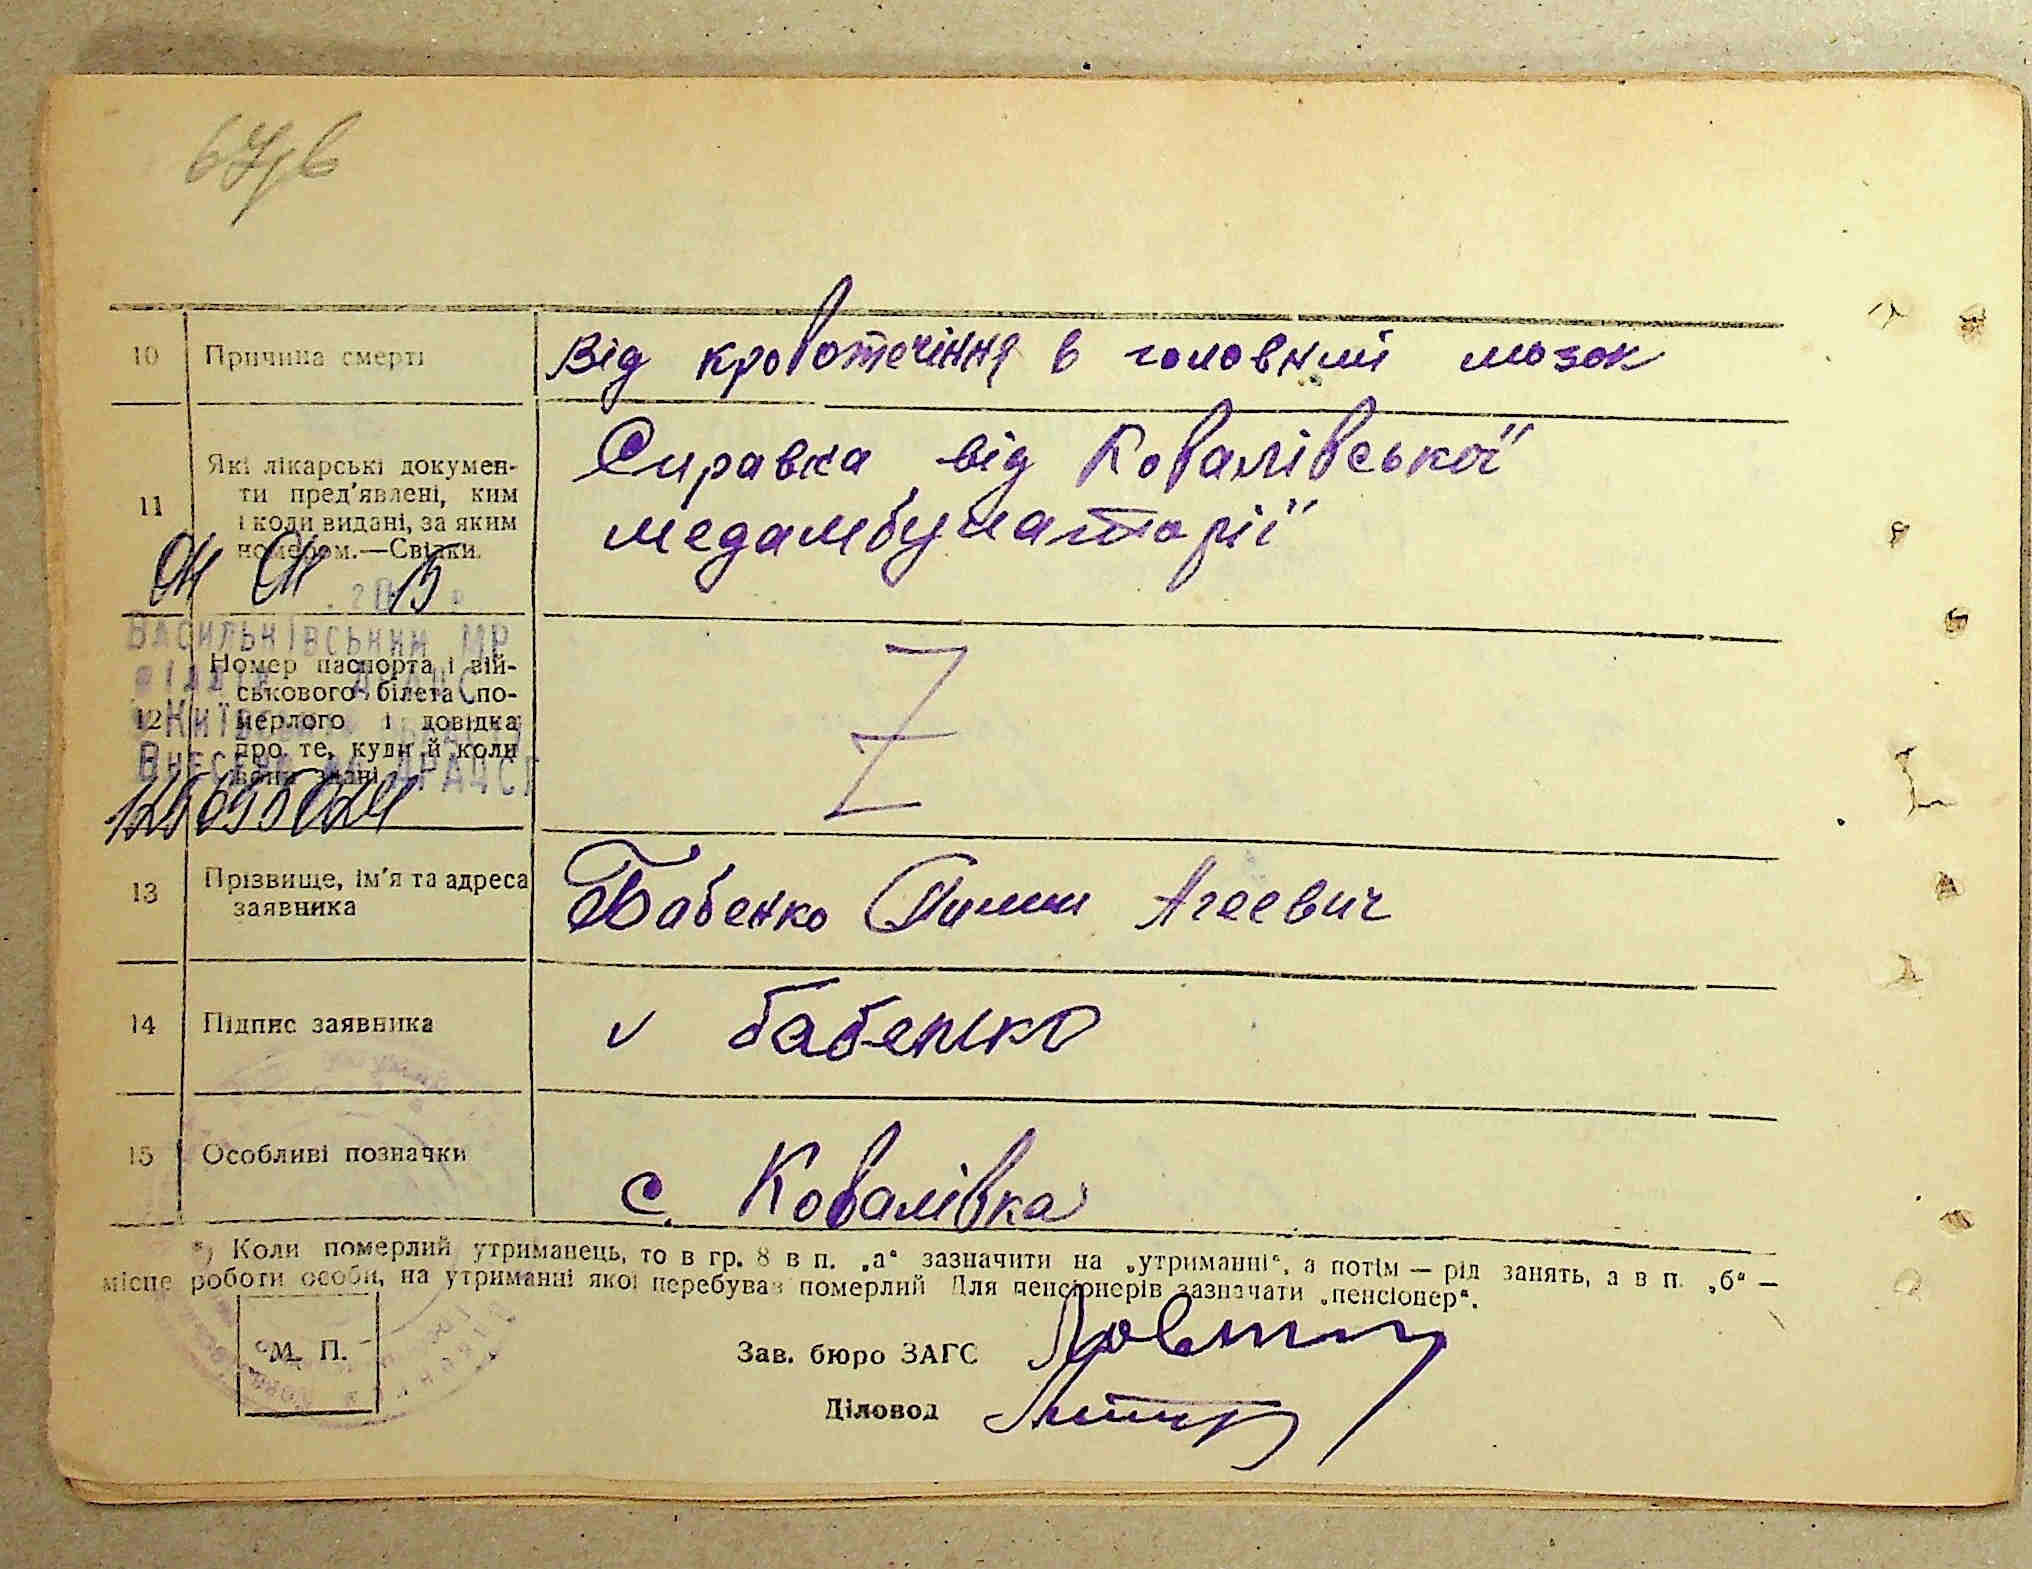 10 Причина смерті Від кровотечіння в головний мозок
11 Які лікарські докумен-
ти пред'явлені, ким
і коли видані, за яким
номером.—Свідки.
Справка від Ковалівської
медамбулаторії
Васильківський МР
12 Номер паспорта і вій-
ськового білета по-
мерлого і довідка
про те, куди й коли
вони здані
Z
13 Прізвище, ім'я та адреса
заявника
Бабенко Агеевич
14 Підпис заявника v Бабенко
15 Особливі позначки
с. Ковалівка
*) Коли померлий утриманець, то в гр. 8 в п. „а“ зазначити на „утриманні“, а потім — рід занять, а в п. „б“ —
місце роботи особи, на утриманні якої перебував померлий Для пенсіонерів зазначати „пенсіонер“.
М. П.
Зав. бюро ЗАГС
Діловод